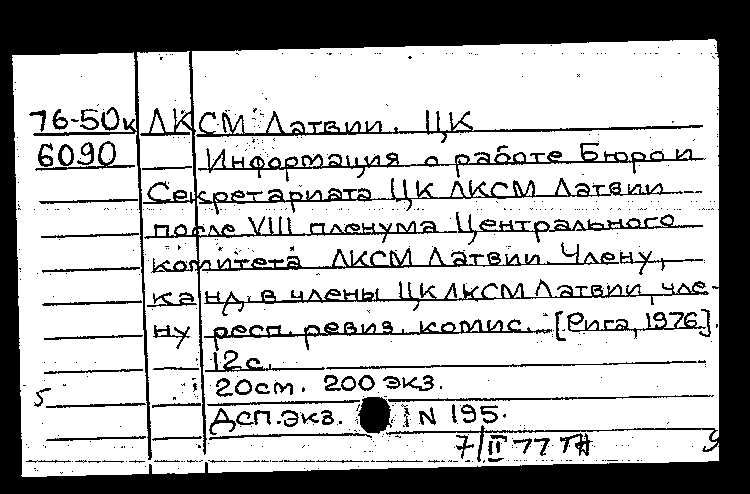 76-50к ЛКСМ Латвии. ЦК
6090 Информация о работе Бюро и
Секретариата ЦК ЛКСМ Латвии
после VIII пленума Центрального
комитета ЛКСМ Латвии. Члену,
канд. в члены ЦК ЛКСМ Латвии, чле-
ну респ. ревиз. комис. [Рига, 1976].
12с.
20см. 200 экз.
5
Дсп. экз. N 195.
7/II 77 ТН